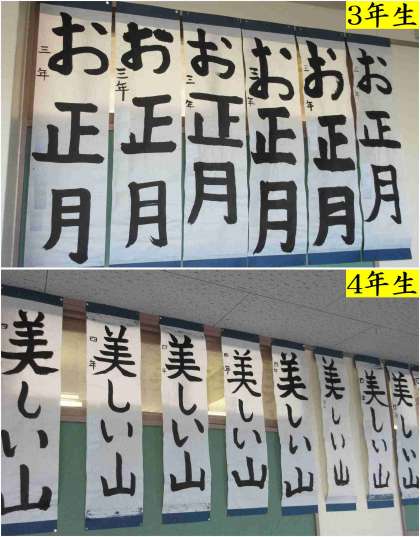 3年生
お正月
三年
お正月
三年
お正月
三年
お正月
三年
お正月
三年
お正月
4年生
美しい山
美しい山
四年
美しい山
四年
美しい山
四年
美しい山
四年
美しい山
美しい山
四年
美しい山